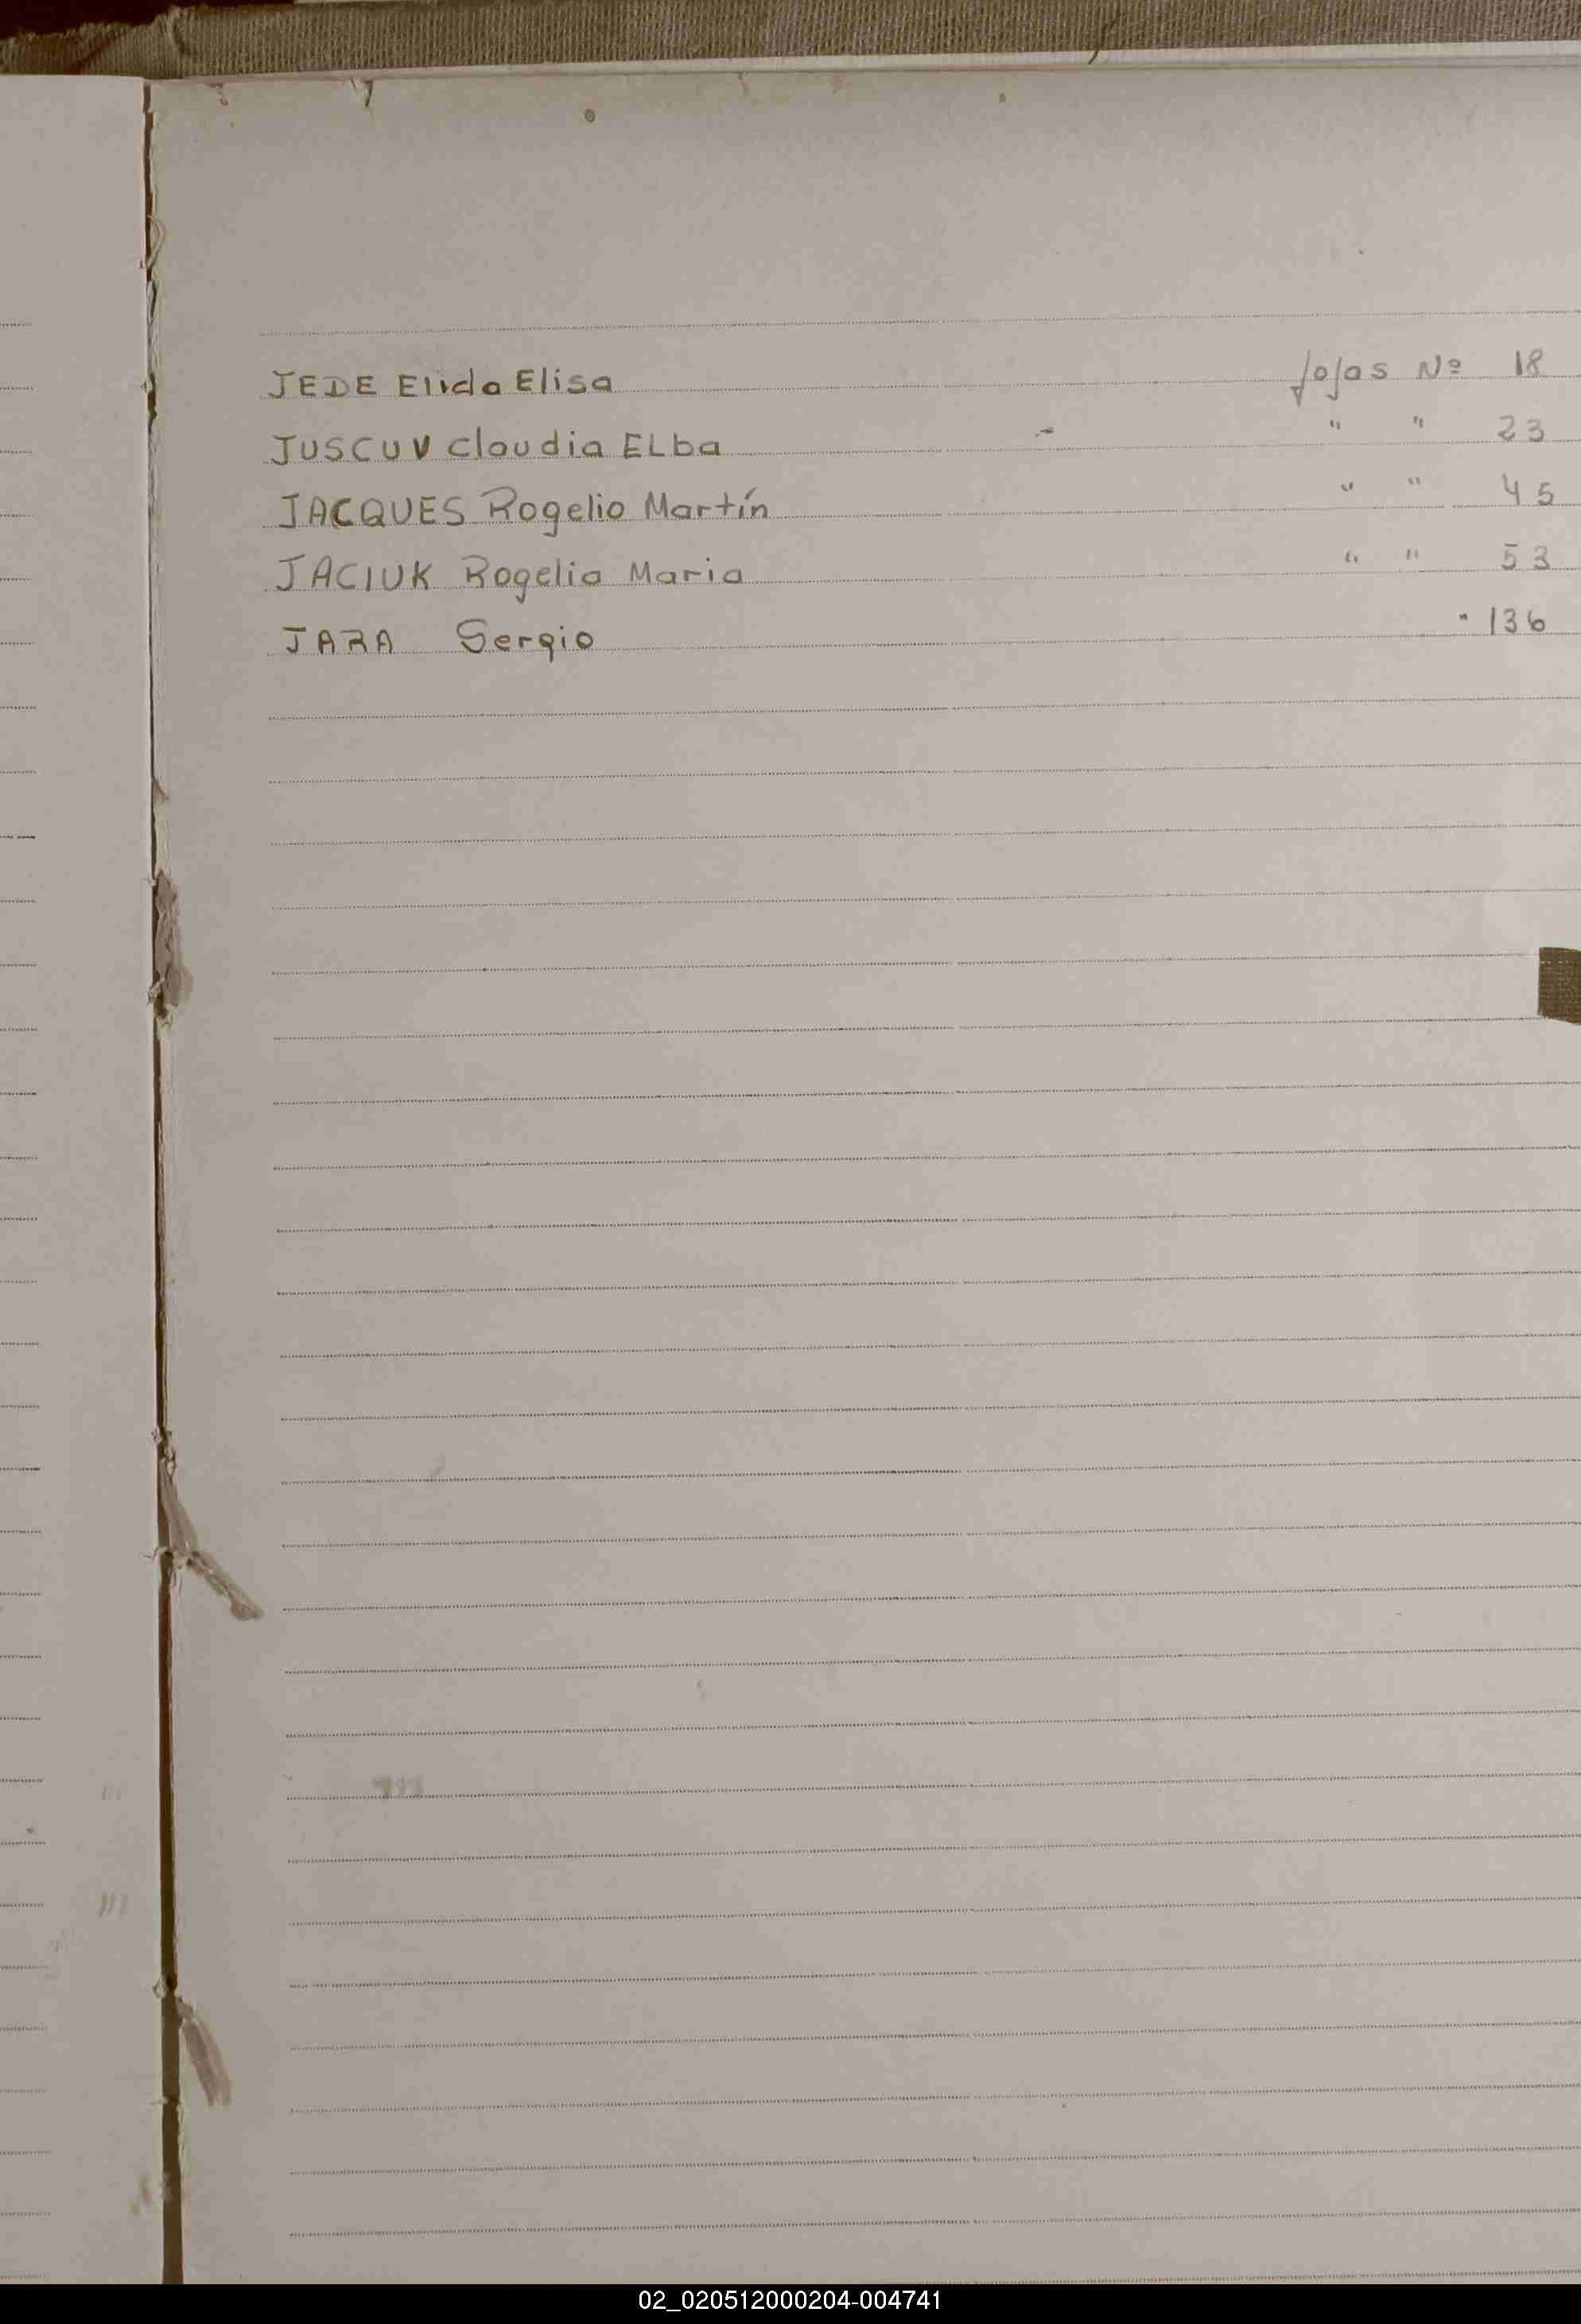 JEDE Elida Elisa fojas Nº 18
JUSCUV Claudia ELba - " " 23
JACQUES Rogelio Martín " " 45
JACIUK Rogelia Maria " " 53
JARA Sergio " 136
02_020512000204-004741